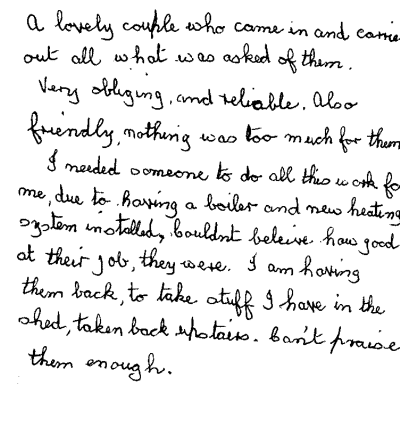 A lovely couple who came in and carrie
out all what was asked of them.
Very obliging, and reliable. Also
friendly, nothing was too much for them
I needed someone to do all this work fo
me, due to having a boiler and new heating
system installed, Couldnt beleive how good
at their job, they were. I am having
them back, to take stuff I have in the
shed, taken back upstairs. Can't praise
them enough.